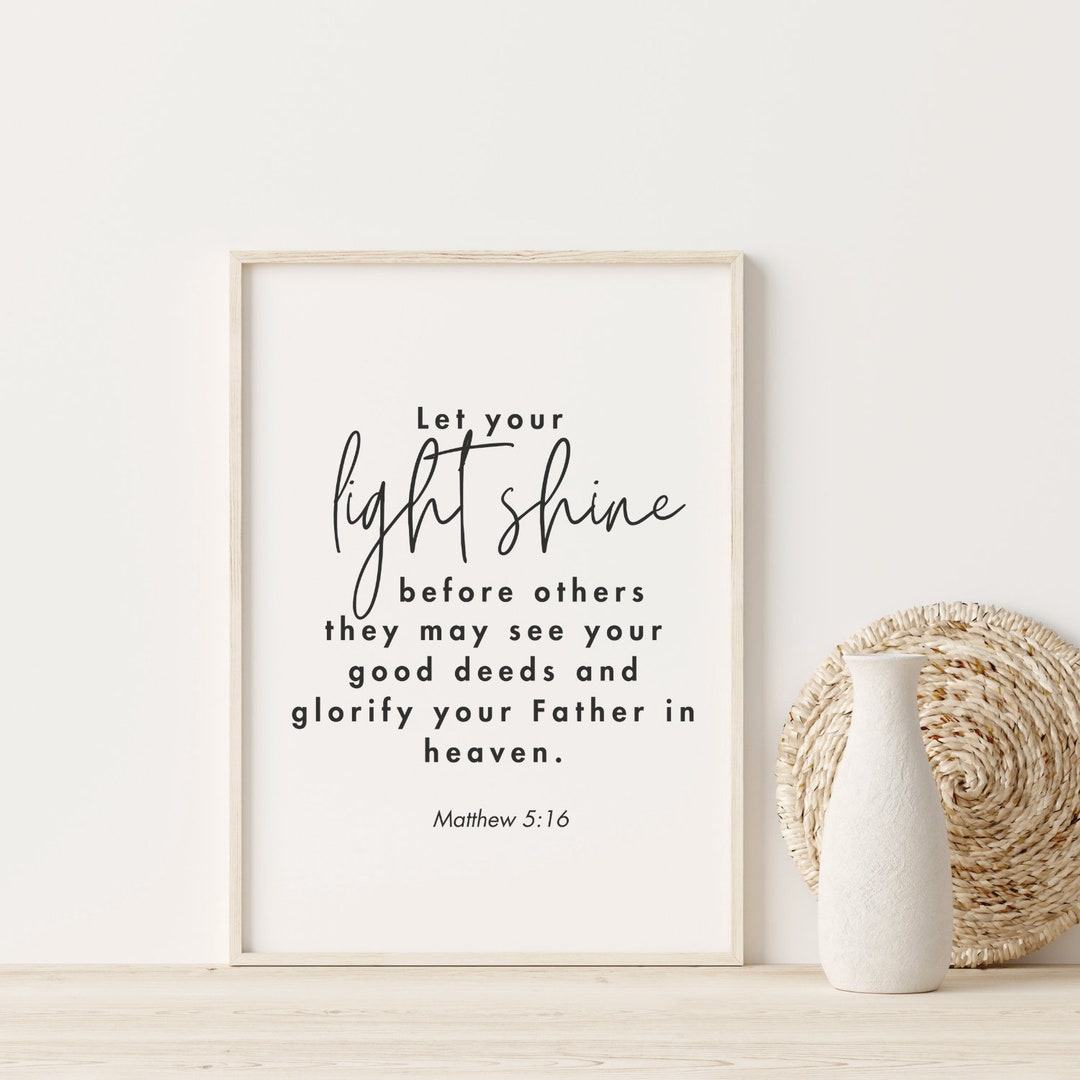 Let your
light shine
before others
they may see your
good deeds and
glorify your Father in
heaven.
Matthew 5:16